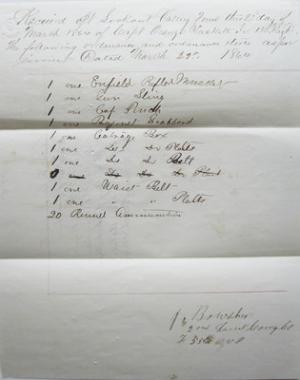 Received at Lookout Valley Tenn this 2 day of
March 1864 of Capt
The following ordnance and ordnance stores as per
Invoice Dated March 29th 1864
1 one Enfield Rifled Musket
1 one Gun Sling
1 one Cap Pouch
1 one Bayonet Scabbard
1 one Catrage Box
1 one " Do Do Plate
1 one " Do Do Belt
0 one Do Do Do Plate
1 one Waist Belt
1 one " " Plate
20 Round Ammunition
Bowsher
2nd Lieut
55